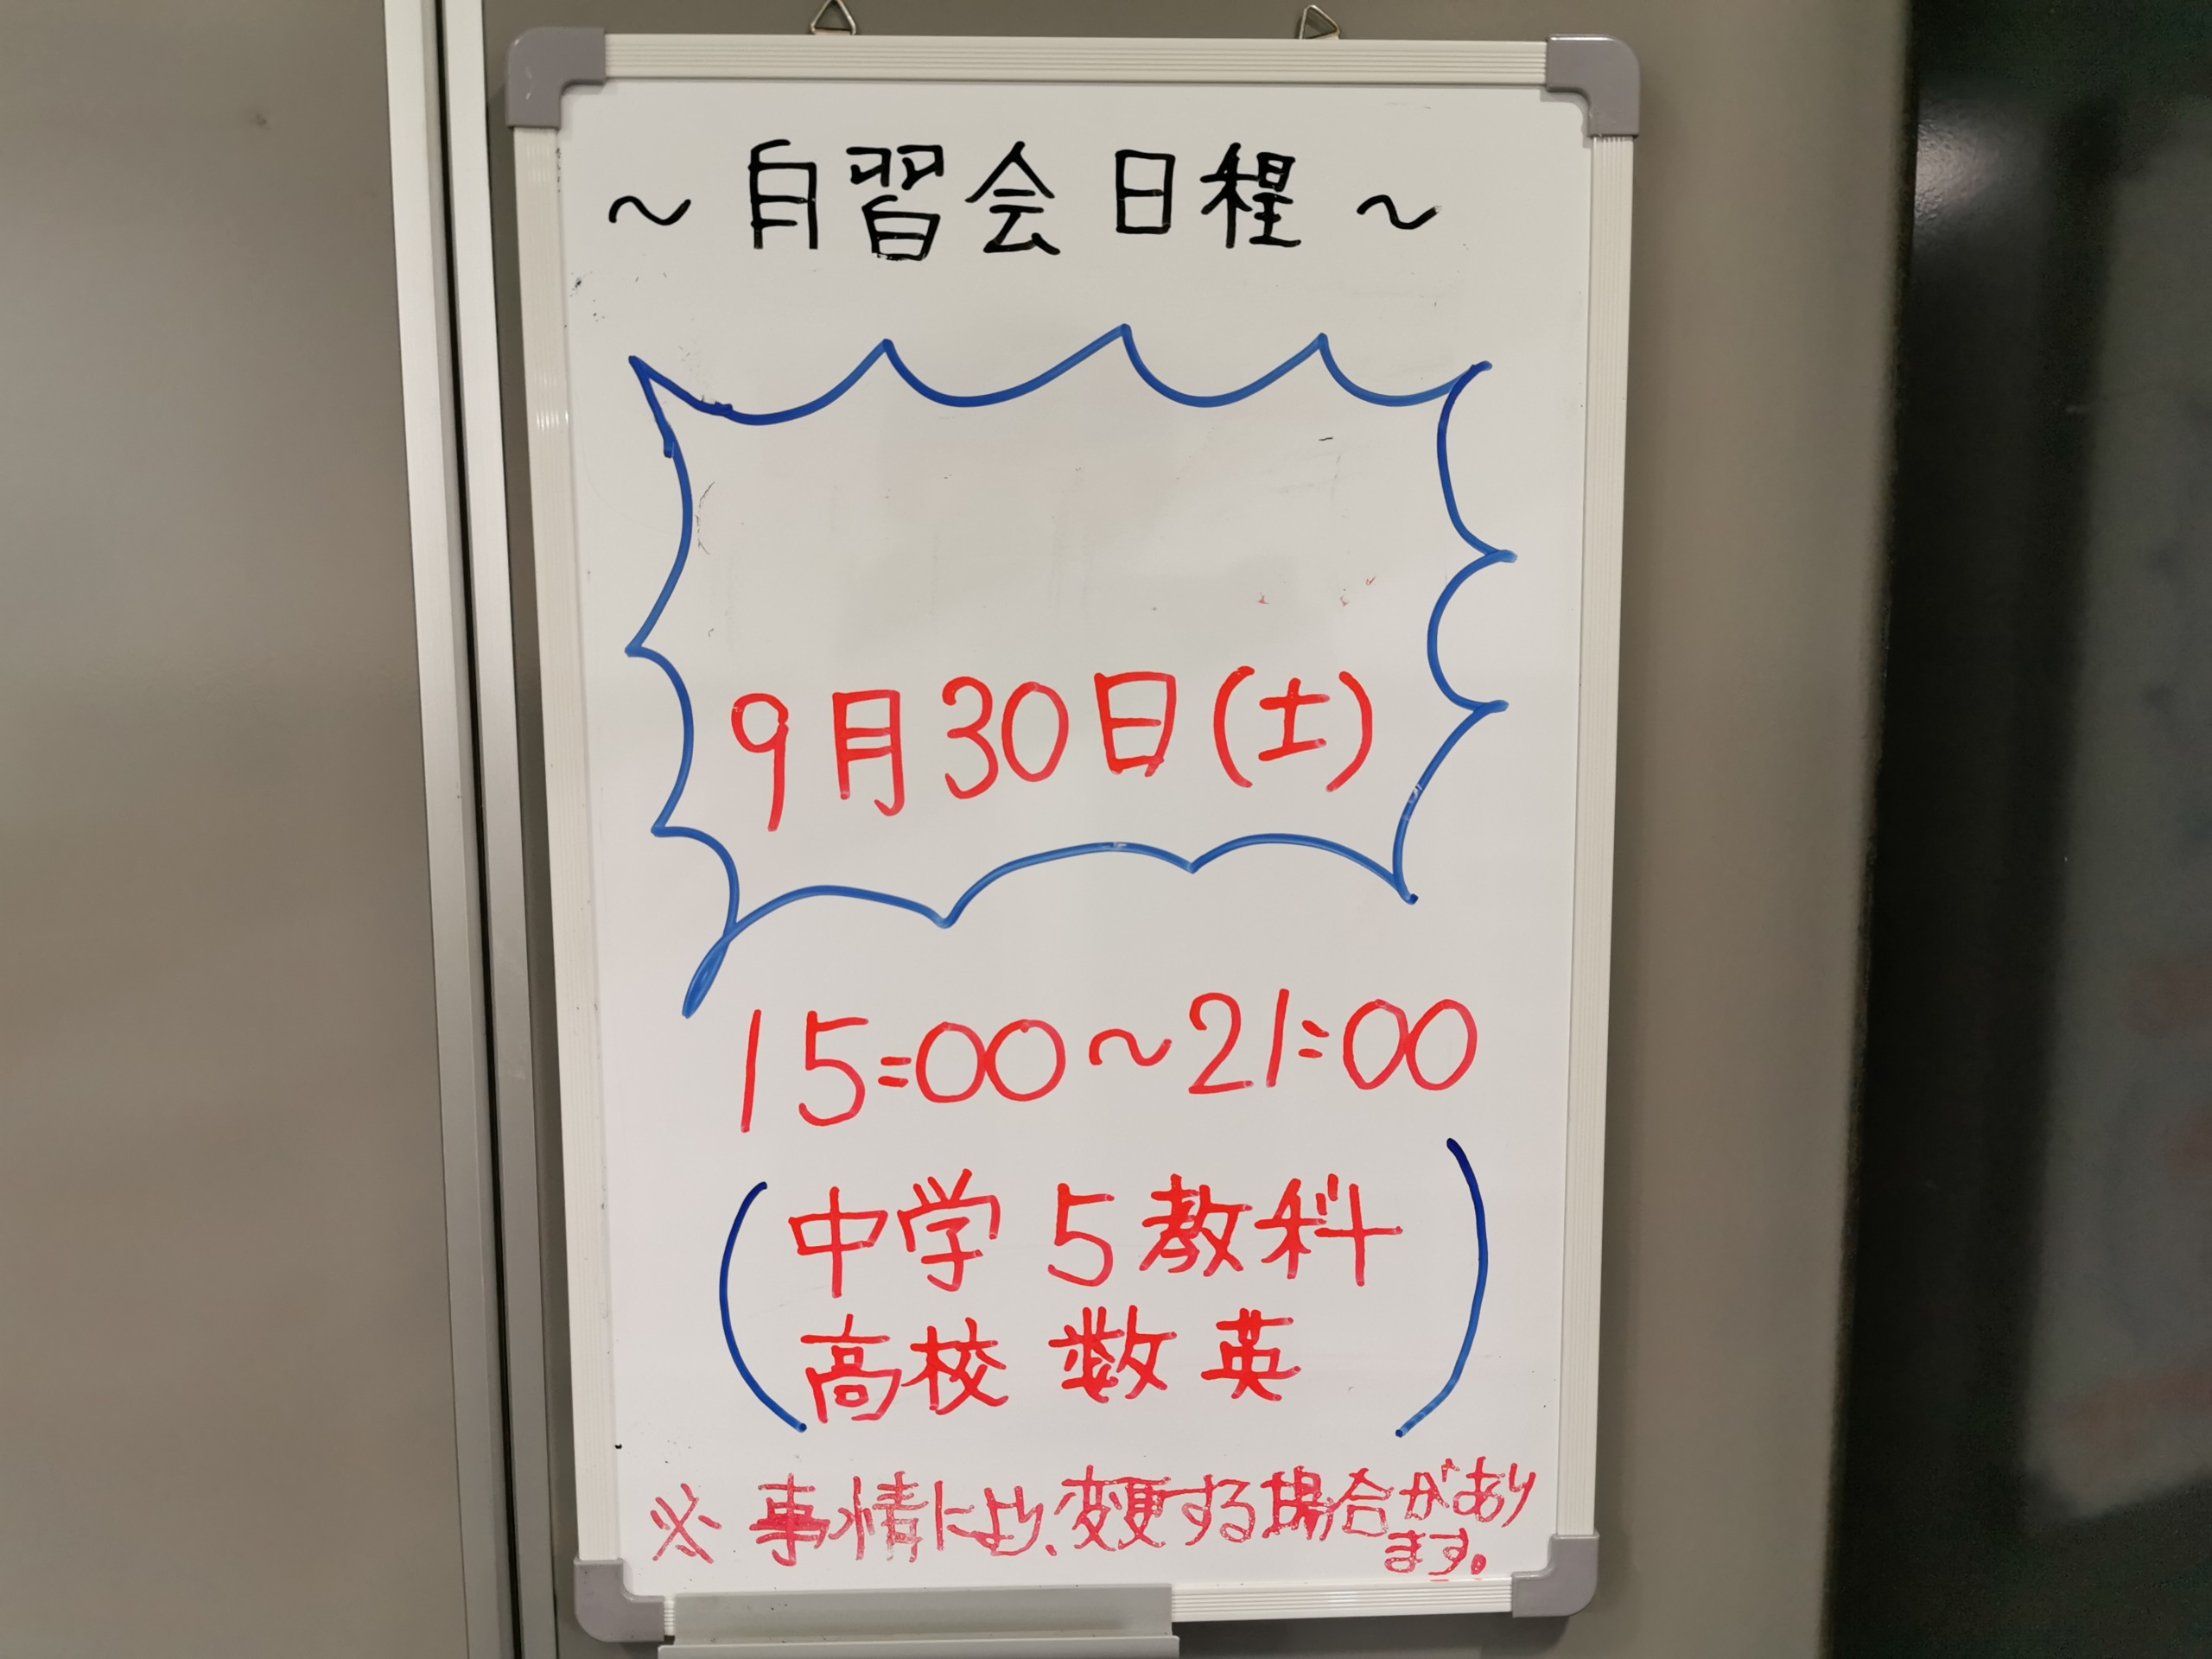 ～自習会日程～
9月30日(土)
15:00～21:00
中学 5教科
高校 数英
※ 事情により、変更する場合があり
ます。